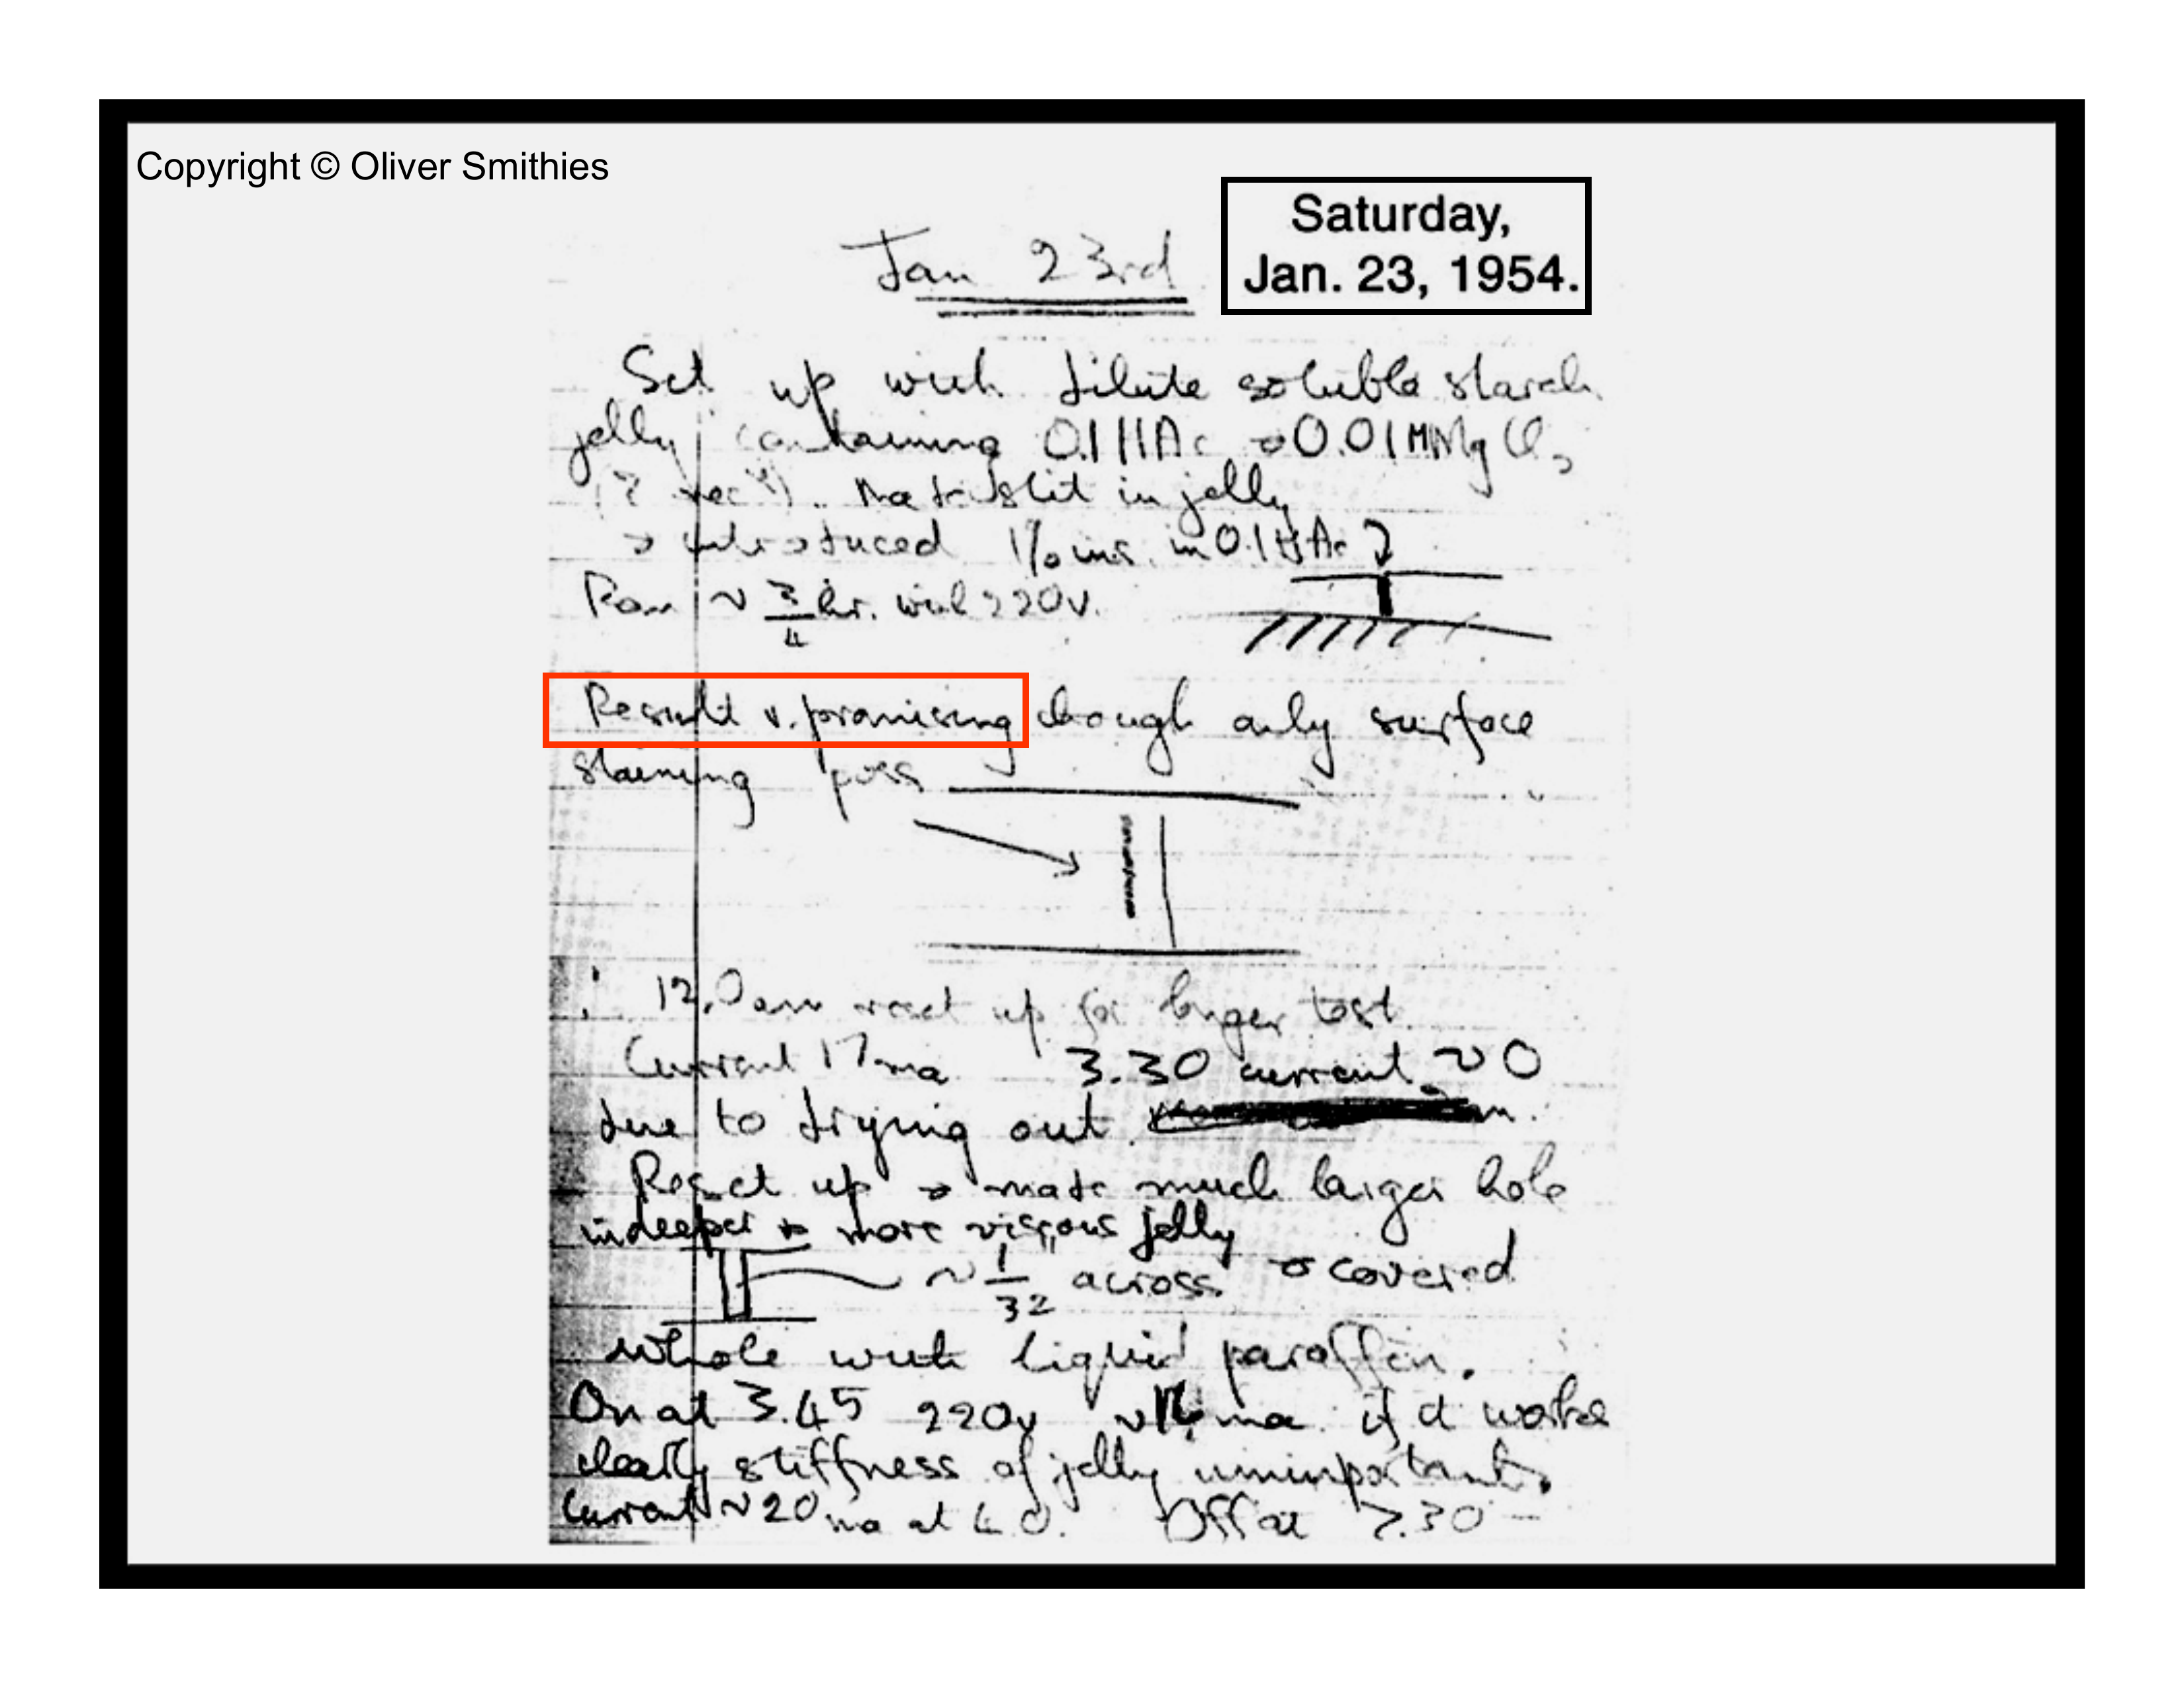 Copyright © Oliver Smithies
Saturday,
Jan. 23, 1954.
Jan 23rd
Set up with dilute soluble starch
jelly containing 0.1 HAc 0.01M MgCl2
Made slit in jelly
introduced 1% ins. in 0.1 HAc
Ran ~ 3/4 hr. with 220v.
Result v. promising though only surface
staining poss
∴ 12.0 am reset up for longer test.
Current 17 ma 3.30 current ~ 0
due to drying out.
Reset up made much larger hole
in deeper & more viscous jelly
~ 1/32" across. & covered
whole with liquid paraffin.
On at 3.45 220v ~ ma. if it works
clearly stiffness of jelly unimportant.
Current ~ 20 ma at 4.0. Off at 7.30